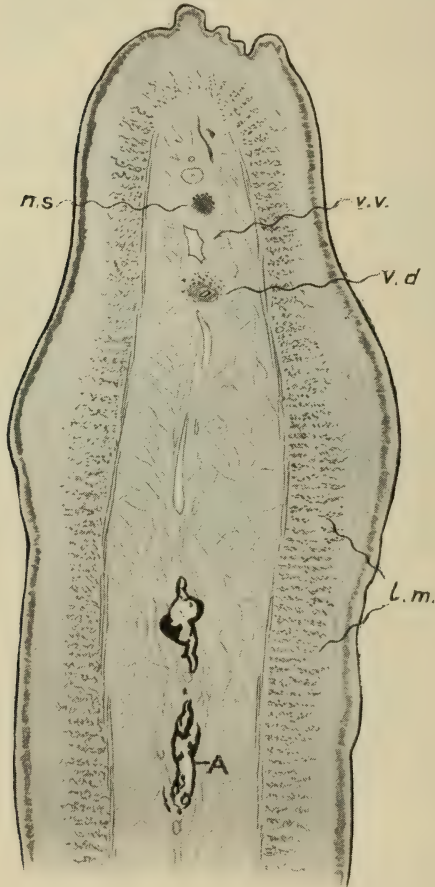 n.s
v.v.
v.d
l.m.
A